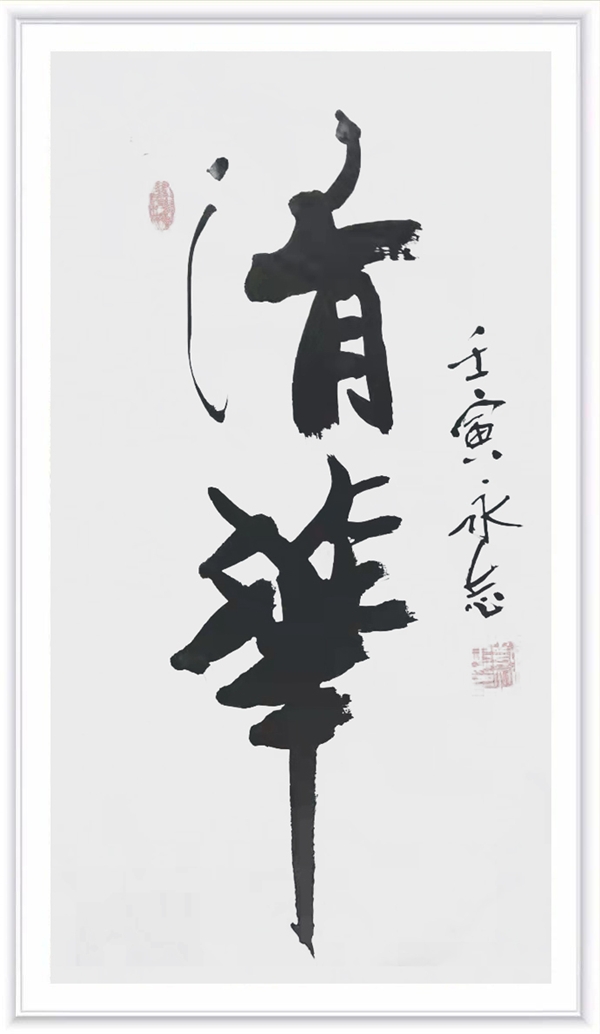 清華
壬寅永志